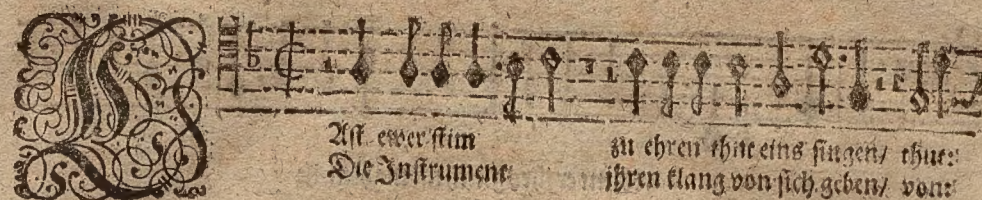 LAst ewer stim zu ehren thut eins singen/ thut:
Die Instrument ihren klang von sich geben/ von: